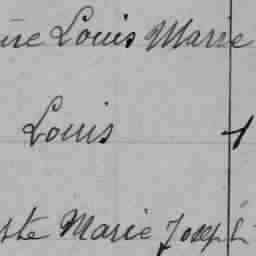 Louis Marie
Louis 1
Marie Joseph